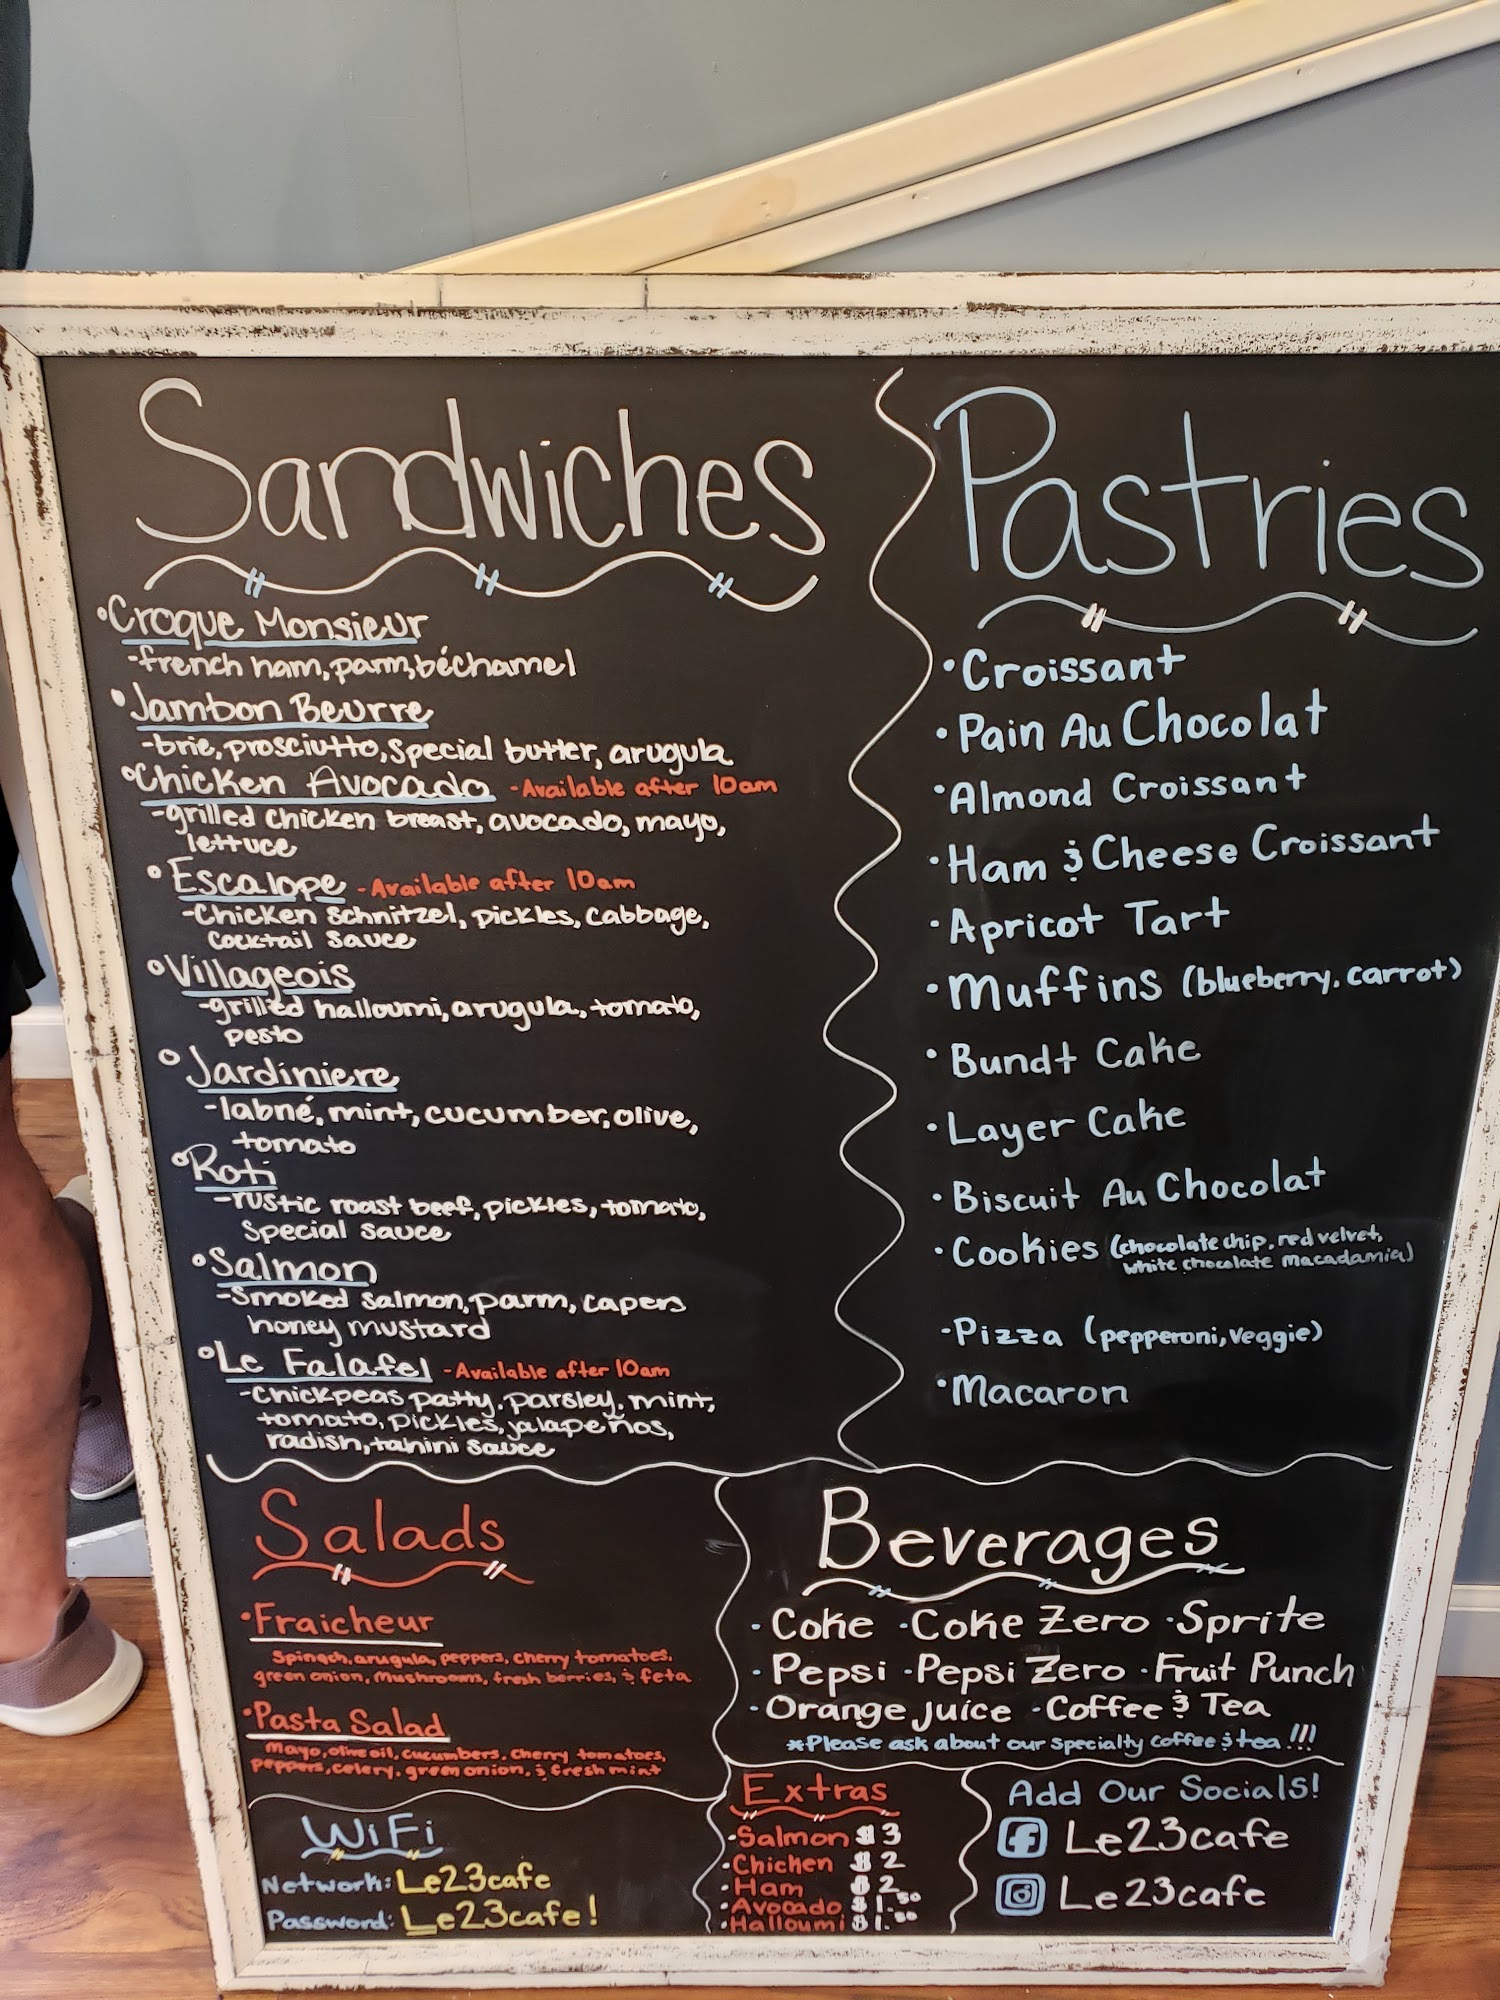 Sandwiches
•Croque Monsieur
-french ham, parm, béchamel
•Jambon Beurre
-brie, prosciutto, special butter, arugula
•Chicken Avocado -Available after 10am
-grilled chicken breast, avocado, mayo,
lettuce
•Escalope -Available after 10am
-Chicken schnitzel, pickles, cabbage,
cocktail sauce
•Villageois
-grilled halloumi, arugula, tomato,
pesto
•Jardiniere
-labné, mint, cucumber, olive,
tomato
•Roti
-rustic roast beef, pickles, tomato,
special sauce
•Salmon
-smoked salmon, parm, capers
honey mustard
•Le Falafel -Available after 10am
-Chickpeas patty, parsley, mint,
tomato, pickles, jalapeños,
radish, tahini sauce
Pastries
•Croissant
•Pain Au Chocolat
•Almond Croissant
•Ham & Cheese Croissant
•Apricot Tart
•Muffins (blueberry, carrot)
•Bundt Cake
•Layer Cake
•Biscuit Au Chocolat
•Cookies (chocolate chip, red velvet,
white chocolate macadamia)
-Pizza (pepperoni, veggie)
•Macaron
Salads
•Fraicheur
Spinach, arugula, peppers, cherry tomatoes,
green onion, mushrooms, fresh berries, & feta
•Pasta Salad
Mayo, olive oil, cucumbers, cherry tomatoes,
peppers, celery, green onion, & fresh mint
Beverages
•Coke •Coke Zero •Sprite
•Pepsi •Pepsi Zero •Fruit Punch
•Orange juice •Coffee & Tea
*Please ask about our specialty coffee & tea!!!
WiFi
Network: Le23cafe
Password: Le23cafe!
Extras
•Salmon $3
•Chicken $2
•Ham $2
•Avocado $1.50
•Halloumi $1.50
Add Our Socials!
Le23cafe
Le23cafe